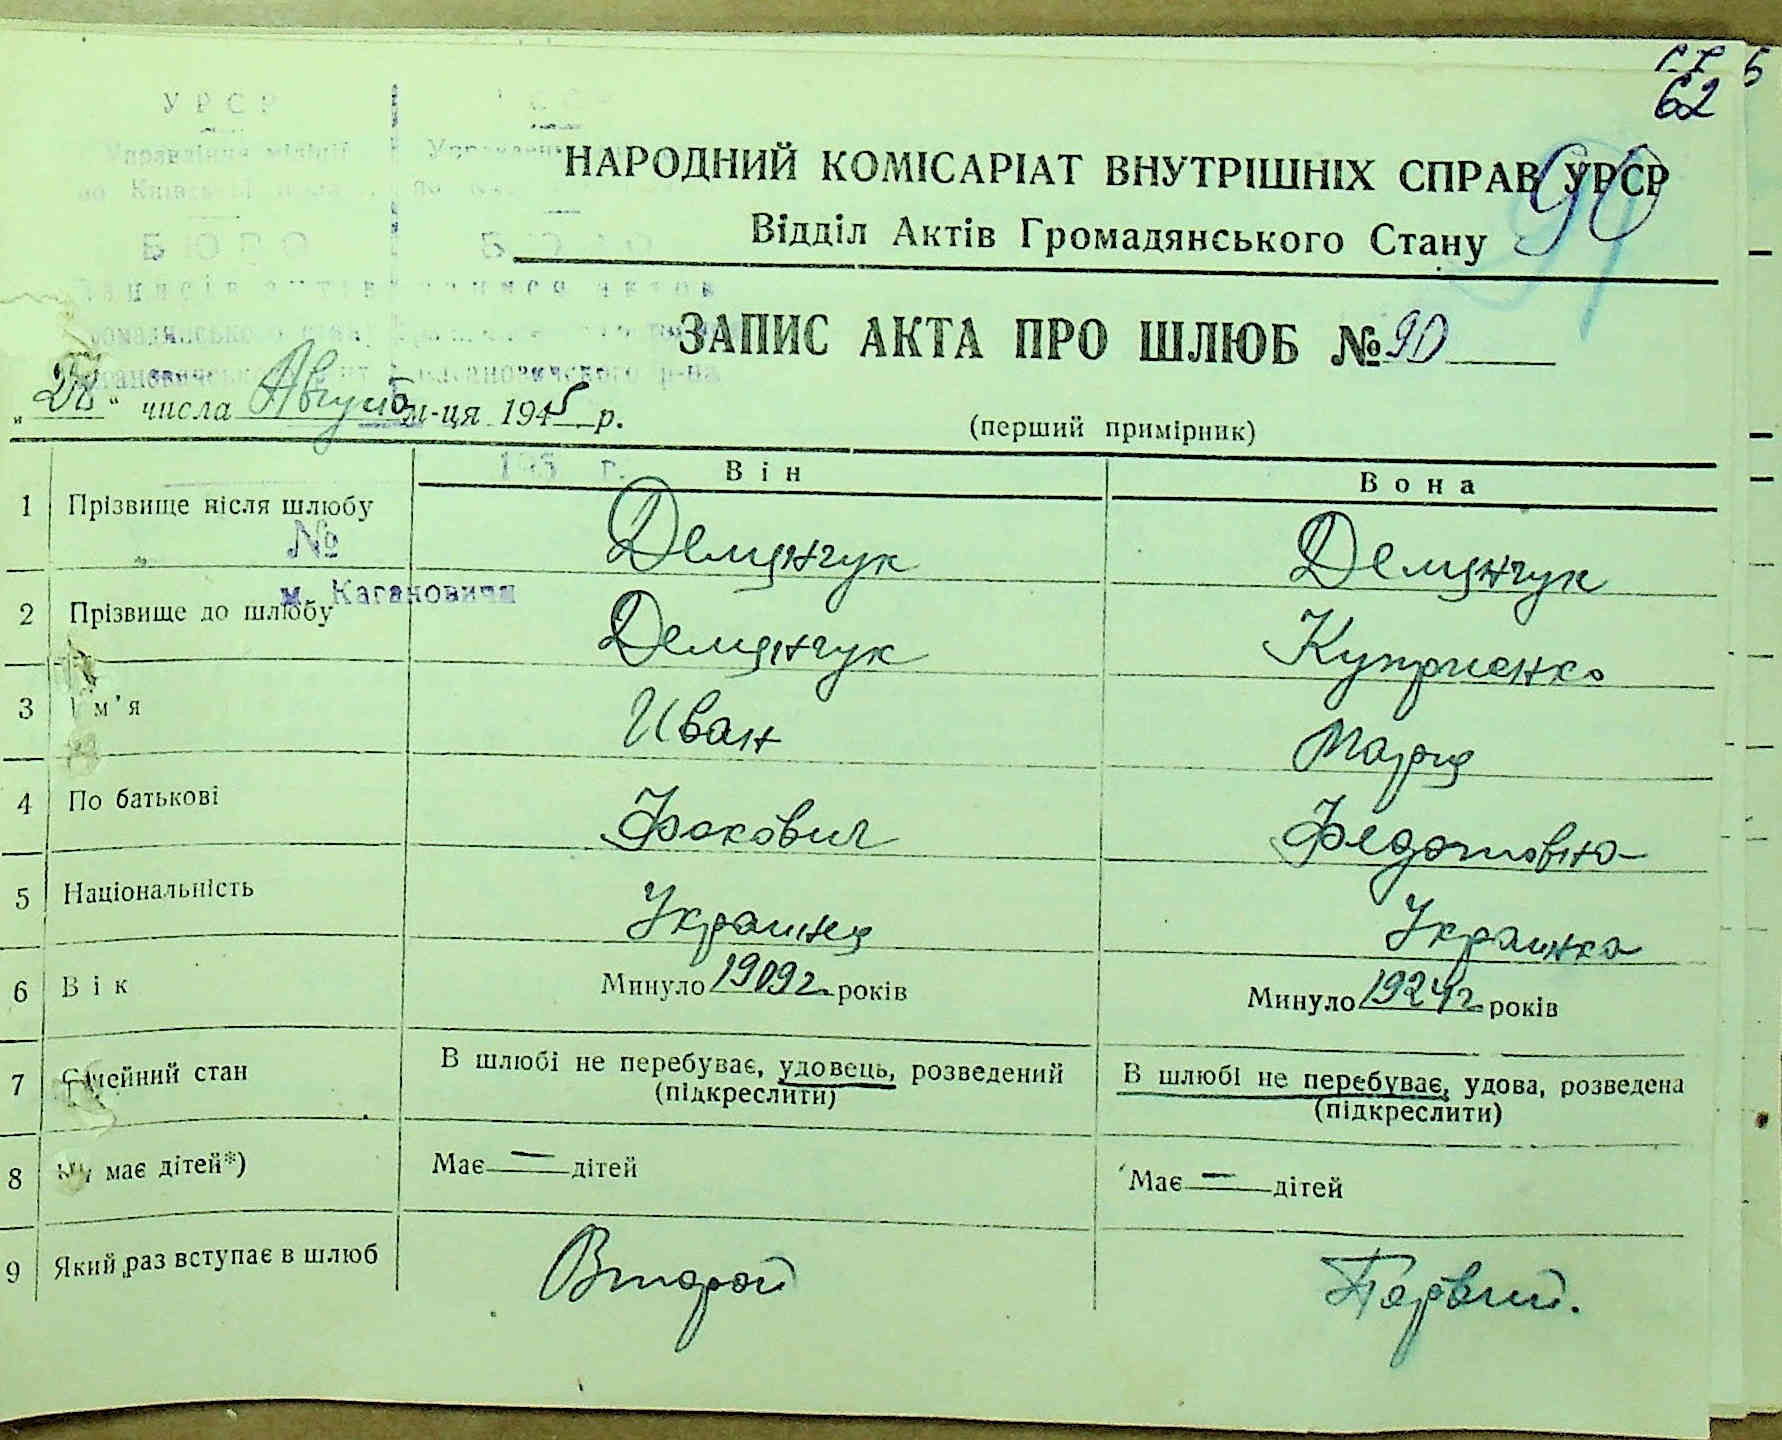 62
5
УРСР
Управління міліції
БЮРО
НАРОДНИЙ КОМІСАРІАТ ВНУТРІШНІХ СПРАВ УРСР
90
Відділ Актів Громадянського Стану
ЗАПИС АКТА ПРО ШЛЮБ № 90
" " числа Август м-ця 1945 р.
(перший примірник)
Він Вона
1 Прізвище після шлюбу Демянчук Демянчук
№
м. Кагановичи
2 Прізвище до шлюбу Демянчук Куприенко
3 Ім'я Иван Мария
4 По батькові Фокович Федотовна
5 Національність Украинец Украинка
6 Вік Минуло 1909г. років Минуло 1924г років
7 Сімейний стан В шлюбі не перебуває, удовець, розведений В шлюбі не перебуває, удова, розведена
(підкреслити) (підкреслити)
8 Чи має дітей*) Має — дітей Має — дітей
9 Який раз вступає в шлюб Второй Первый.